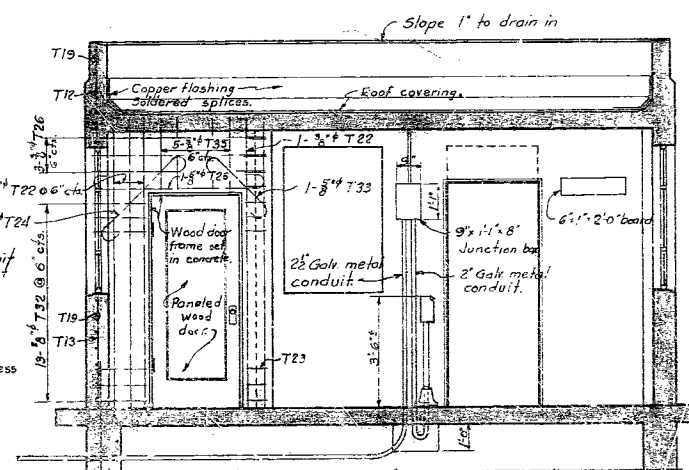 Slope 1" to drain in
T19
T12
Copper flashing
Soldered splices.
Roof covering.
T26
6"cts.
5-5/8"ϕ T33
6"cts.
1-3/8"ϕ T22
1-5/8"ϕ T25
1-5/8"ϕ T33
T22 @ 6"cts.
T24
9"
1'-1"
Wood door
frame set
in concrete.
Paneled
wood
door.
2½" Galv. metal
conduit.
9"x 1'-1"x 8"
Junction box
2" Galv. metal
conduit.
6"x 1"x 2'-0" board
T32 @ 6" cts.
T19
T13
T23
3'-6"±
1'-0"